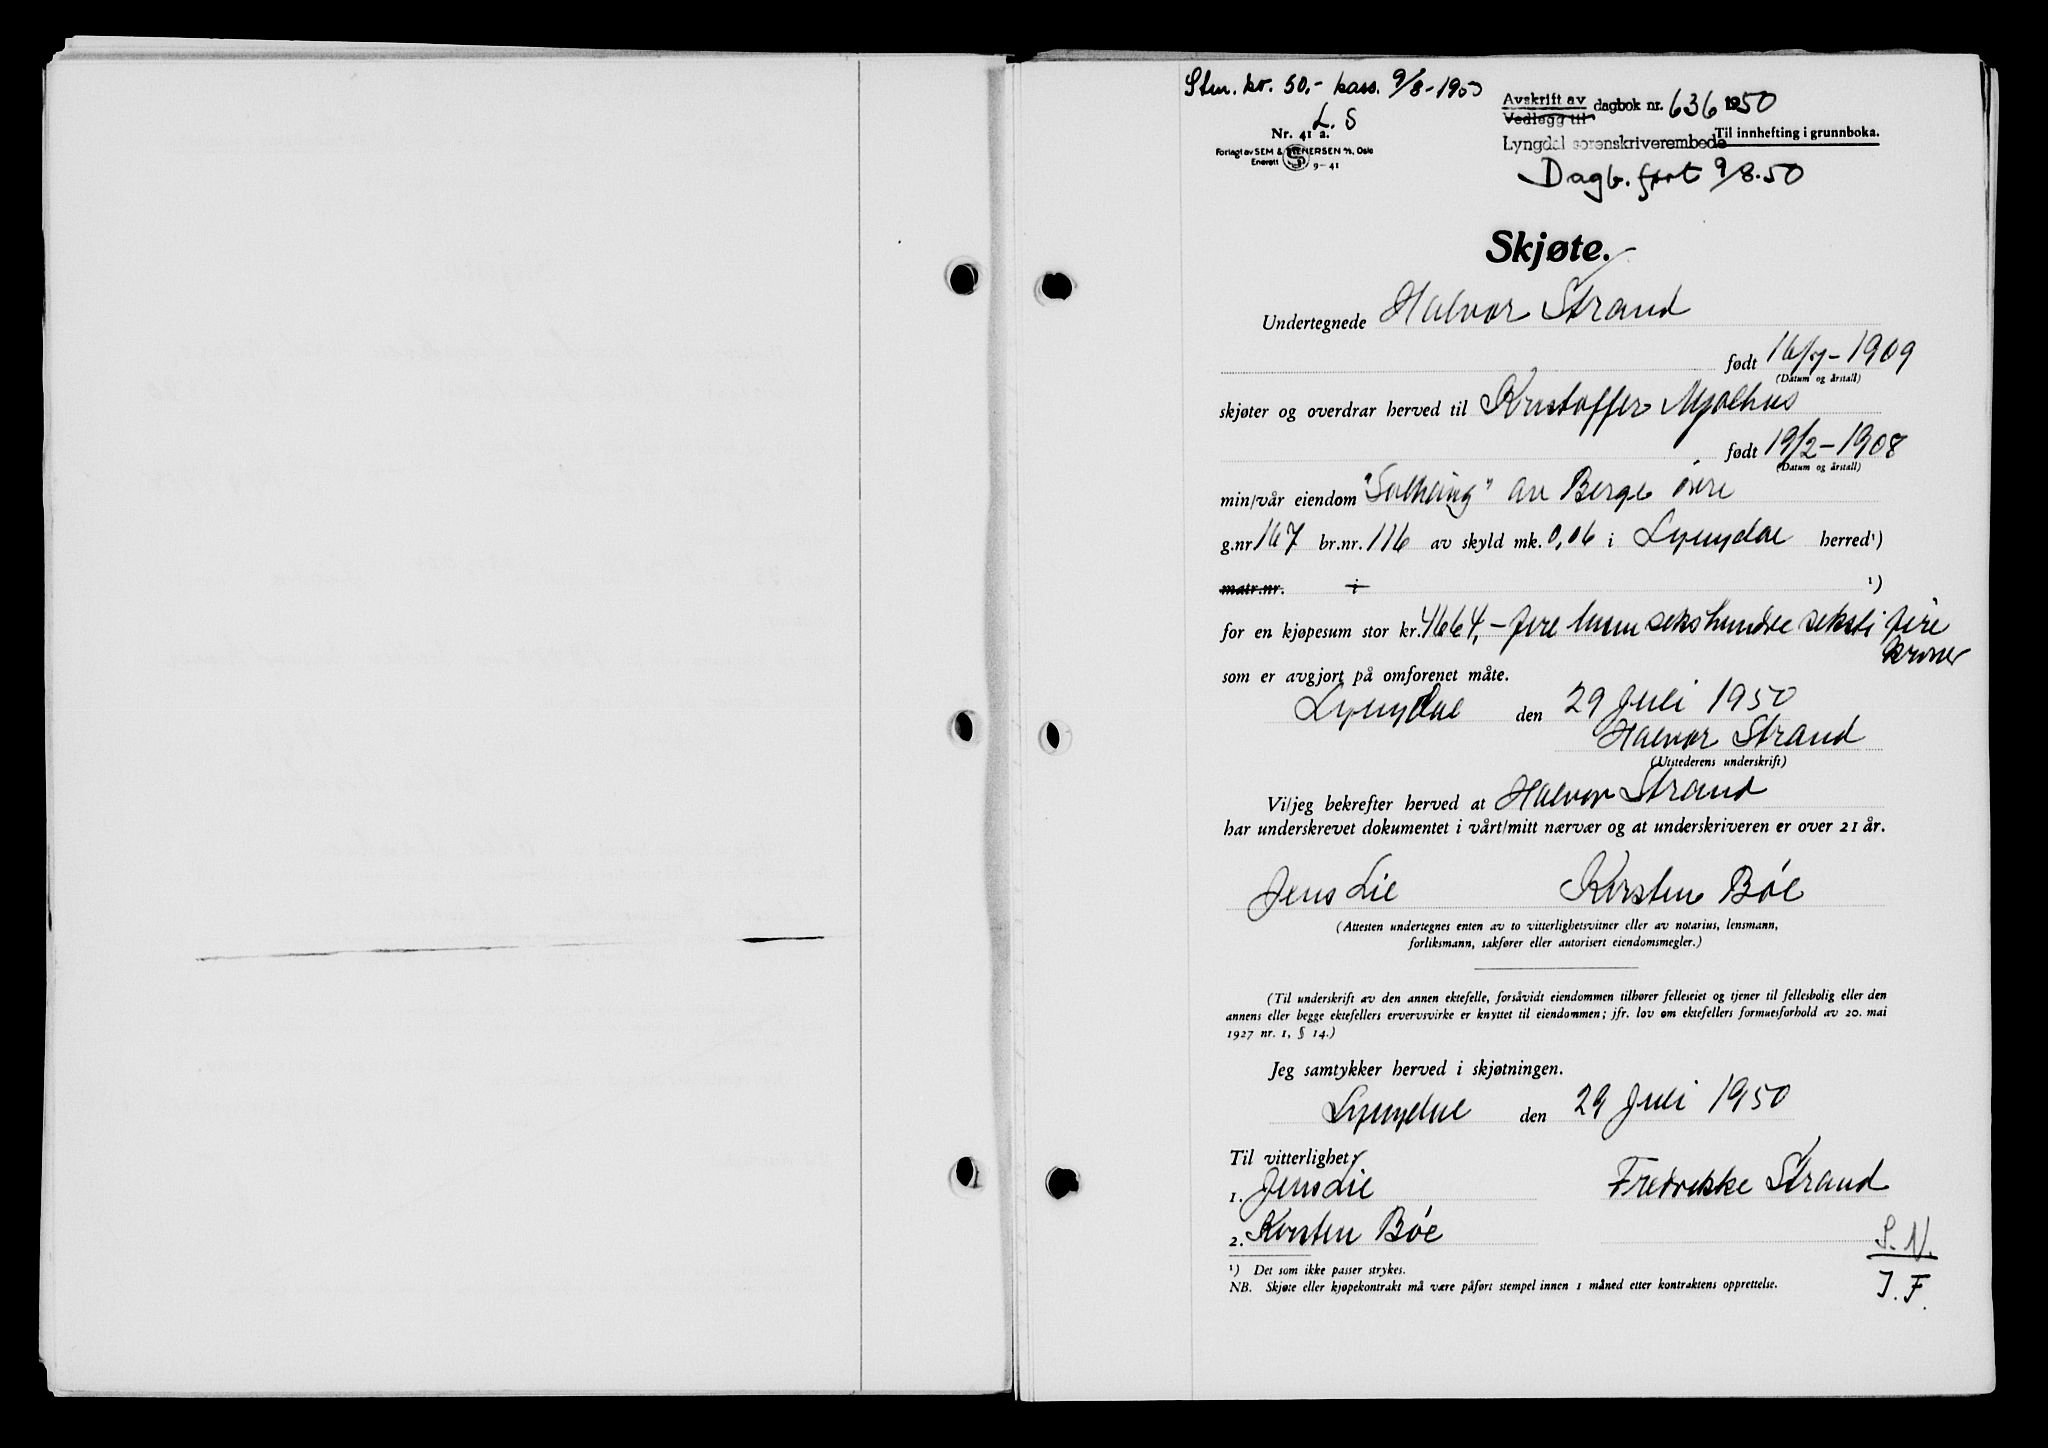 Stm. kr. 50,- kass. 9/8-1950
L. S
Avskrift av
Vedlegg til
dagbok nr. 636 1950
Nr. 41 a.
Til innhefting i grunnboka.
Forlagt av SEM & STENERSEN A/S, Oslo
Enerett 9-41
Lyngdal sorenskriverembede
Dagb. ført 9/8.50
Skjøte.
Undertegnede Halvor Strand
født 16/7-1909
(Datum og årstall)
skjøter og overdrar herved til Kristoffer Mjølhus
født 19/2-1908
(Datum og årstall)
min/vår eiendom "Solheing" av Berge øvre
g.nr 167 br.nr. 116 av skyld mk. 0,06 i Lyngdal herred¹)
matr.nr. i ¹)
for en kjøpesum stor kr. 4664,- fire tusen sekshundre seksti fire
kroner
som er avgjort på omforenet måte.
Lyngdal den 29 Juli 1950
Halvor Strand
(Utstederens underskrift)
Vi/jeg bekrefter herved at Halvor Strand
har underskrevet dokumentet i vårt/mitt nærvær og at underskriveren er over 21 år.
Jens Lie Kirsten Bøe
(Attesten undertegnes enten av to vitterlighetsvitner eller av notarius, lensmann,
forliksmann, sakfører eller autorisert eiendomsmegler.)
(Til underskrift av den annen ektefelle, forsåvidt eiendommen tilhører felleseiet og tjener til fellesbolig eller den
annens eller begge ektefellers ervervsvirke er knyttet til eiendommen; jfr. lov om ektefellers formuesforhold av 20. mai
1927 nr. 1, § 14.)
Jeg samtykker herved i skjøtningen.
Lyngdal den 29 Juli 1950
Til vitterlighet:
1. Jens Lie Fredrikke Strand
2. Kirsten Bøe
S. N.
J. F.
¹) Det som ikke passer strykes.
NB. Skjøte eller kjøpekontrakt må være påført stempel innen 1 måned etter kontraktens opprettelse.